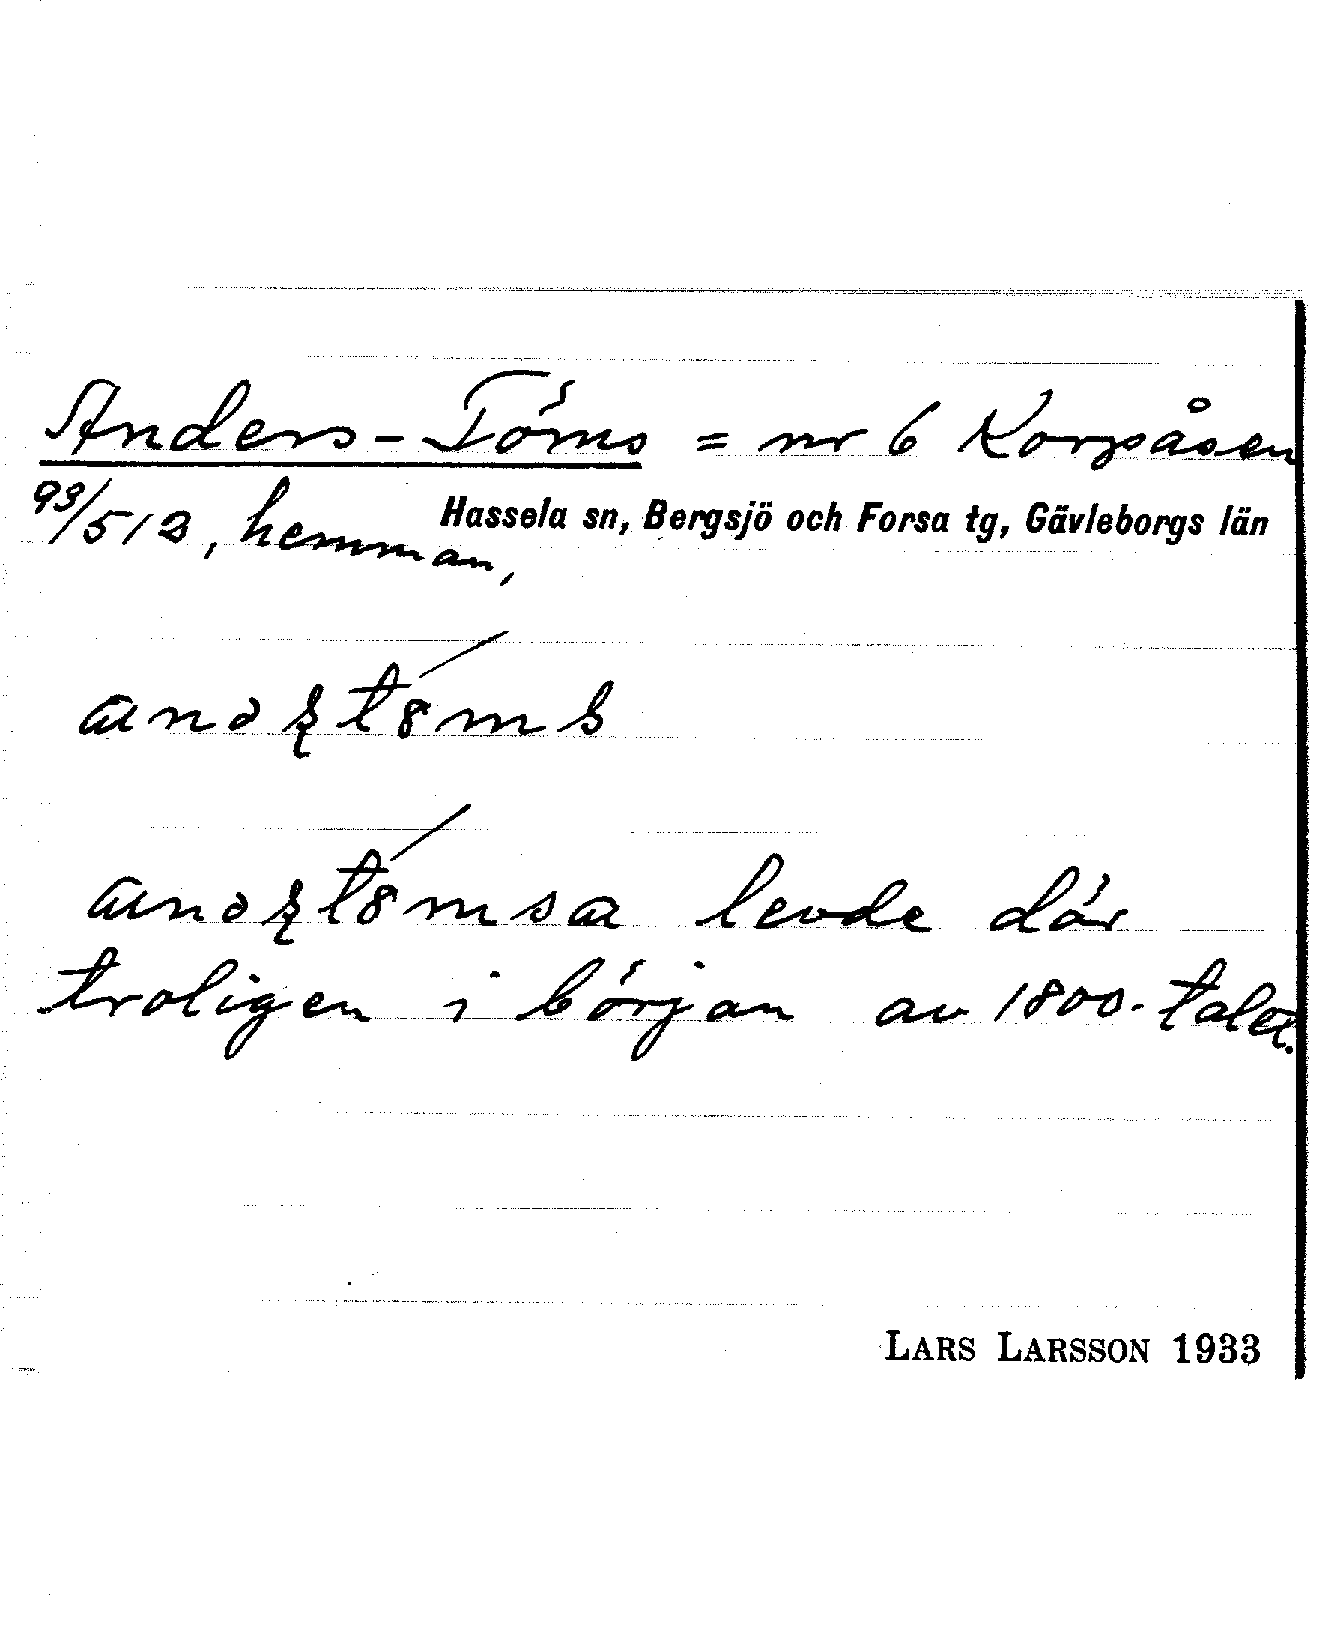 Anders-Töms = nr 6 Korpåsen
93/513, hemman,
Hassela sn, Bergsjö och Forsa tg, Gävleborgs län
levde där
troligen i början av 1800-talet.
LARS LARSSON 1933